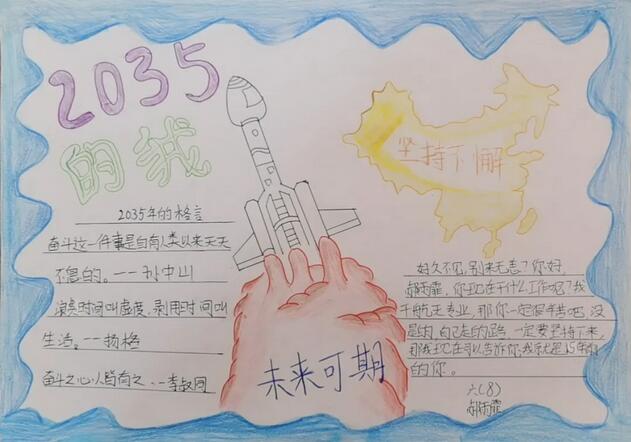 2035
的我
2035年的格言
奋斗这一件事是自有人类以来天天
不息的。——孙中山
浪费时间叫虚度，利用时间叫
生活。——扬格
奋斗之心人皆有之。——李叔同
坚持不懈
未来可期
好久不见，别来无恙？你好，
你现在干什么工作呢？我
干航天专业，那你一定很辛苦吧，没
是的，自己走的路，一定要坚持下来，
那我现在可以告诉你，我就是15年前
的你。
六(8)